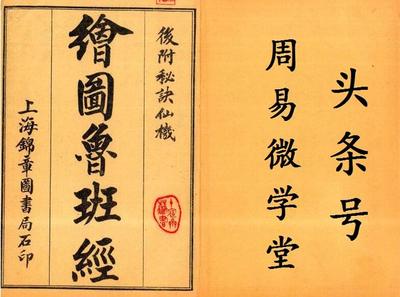 头条号
周易微学堂
後附秘訣仙機
繪圖魯班經
上海錦章圖書局石印